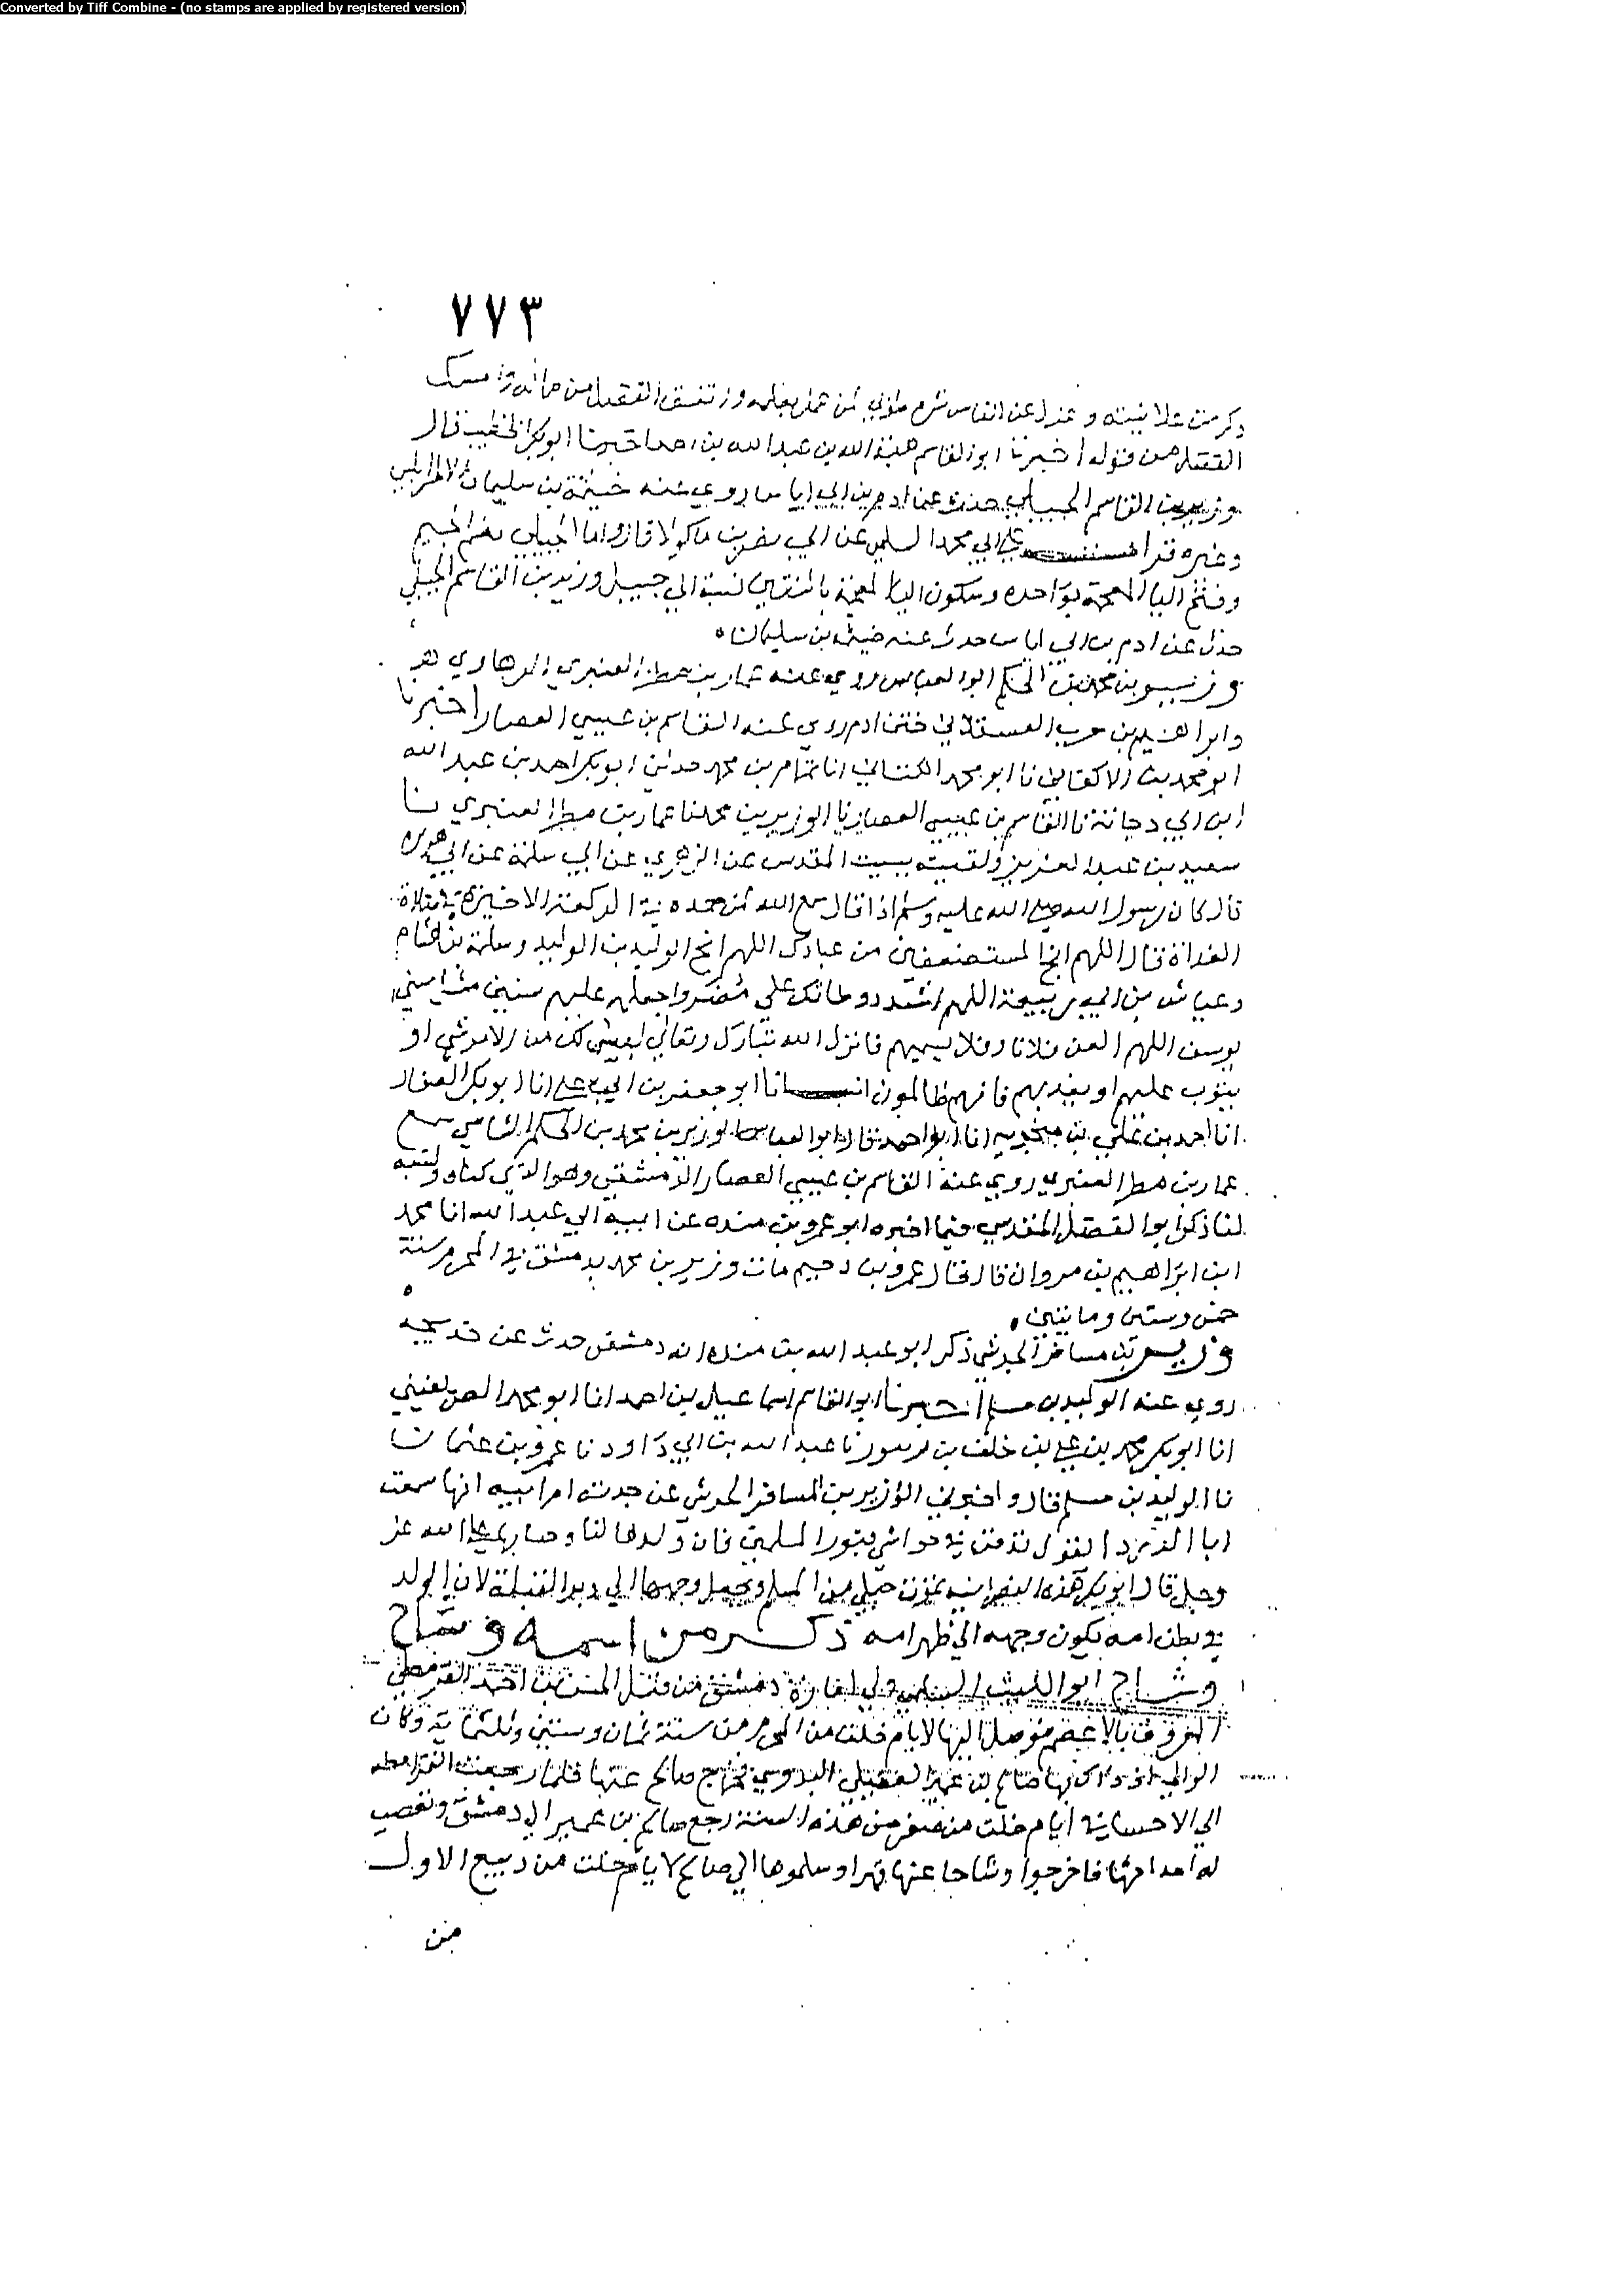 Converted by Tiff Combine - (no stamps are applied by registered version)
٧٧٣
وكرمت علانيته وعزل عن الناس شره طوبي لمن عمل بعلمه وانفق الفضل من ماله وامسك
الفضل من قوله اخبرنا ابو القاسم هبة الله بن عبد الله بن احمد اخبرنا ابو بكر الخطيب قال
وزير بن القاسم الجبيلي حدث عن ادم بن ابي اياس روي عنه خيثمة بن سليمان الاطرابلسي
وغيره قرات علي ابي محمد السلمي عن ابي نصر بن ماكولا قال واما الجبيلي بضم الجيم
وفتح البا المعجمة بواحده وسكون اليا المعجمة باثنتين نسبة الي جبيل وزير بن القاسم الجبيلي
حدث عن ادم بن ابي اياس حدث عنه خيثمة بن سليمان
وزير بن محمد بن الحكم ابو العباس روي عن عمار بن مطر العنبري الرهاوي
وابراهيم بن حرب العسقلاني ختن ادم روي عنه القاسم بن عيسي العصار اخبرنا
ابو محمد بن الاكفاني نا ابو محمد الكتاني انا تمام بن محمد حدثني ابو بكر احمد بن عبد الله
ابن ابي دجانة نا القاسم بن عيسي العصار نا الوزير بن محمد نا عمار بن مطر العنبري نا
سعيد بن عبد العزيز ولقيته ببيت المقدس عن الزهري عن ابي سلمة عن ابي هريرة
قال كان رسول الله صلي الله عليه وسلم اذا قال سمع الله لمن حمده في الركعة الاخيرة في صلاة
الغداة قال اللهم انج المستضعفين من عبادك اللهم انج الوليد بن الوليد وسلمة بن هشام
وعياش بن ابي ربيعة اللهم اشدد وطاتك علي مضر واجعلها عليهم سنين مثل سني
يوسف اللهم العن فلانا وفلانا يسميهم فانزل الله تبارك وتعالي ليس لك من الامر شي او
يتوب عليهم او يعذبهم فانهم ظالمون انبانا ابو جعفر بن ابي علي انا ابو بكر الصفار
انا احمد بن علي بن منجويه انا ابو احمد قال ابو العباس الوزير بن محمد بن الحكم الشامي سمع
عمار بن مطر العنبري روي عنه القاسم بن عيسي العصار الدمشقي وهو الذي كناه ولقبه
لنا ذكر ابو الفضل المقدسي فيما اخبره ابو عمرو بن منده عن ابيه ابي عبد الله انا محمد
ابن ابراهيم بن مروان قال قال عمرو بن دحيم مات وزير بن محمد بدمشق في المحرم سنة
خمس وستين ومايتين
وزير بن مسافر الجرشي ذكر ابو عبد الله بن منده انه دمشقي حدث عن خديجة
روي عنه الوليد بن مسلم اخبرنا ابو القاسم اسماعيل بن احمد انا ابو محمد الصريفيني
انا ابو بكر محمد بن علي بن خلف بن نا عبد الله بن ابي داود نا عمرو بن عثمان
نا الوليد بن مسلم قال واخبرني الوزير بن المسافر الجرشي عن جدته ام ابيه انها سمعت
ابا الدرداء يقول تدفن في حواشي قبور المسلمين فان ولدها لنا وحسابها علي الله عز
وجل قال ابو بكر هذه النصرانية تموت حبلي من المسلم ويجعل وجهها الي دبر القبلة لان الولد
في بطن امه يكون وجهه الي ظهر امه ذكر من اسمه وشاح
وشاح ابو الليث السلمي ولي امارة دمشق من قبل الحسن بن احمد القرمطي
المعروف بالاعصم فوصل اليها لايام خلت من المحرم من سنة ثمان وستين وثلثماية وكان
الوالي اذ ذاك بها صالح بن عمير العقيلي البدوي فخرج صالح عنها فلما رجعت القرامطه
الي الاحساء في ايام خلت من صفر من هذه السنة رجع صالح بن عمير الي دمشق وتعصب
له احداثها فاخرجوا وشاحا عنها قهرا وسلموها الي صالح لايام خلت من ربيع الاول
من